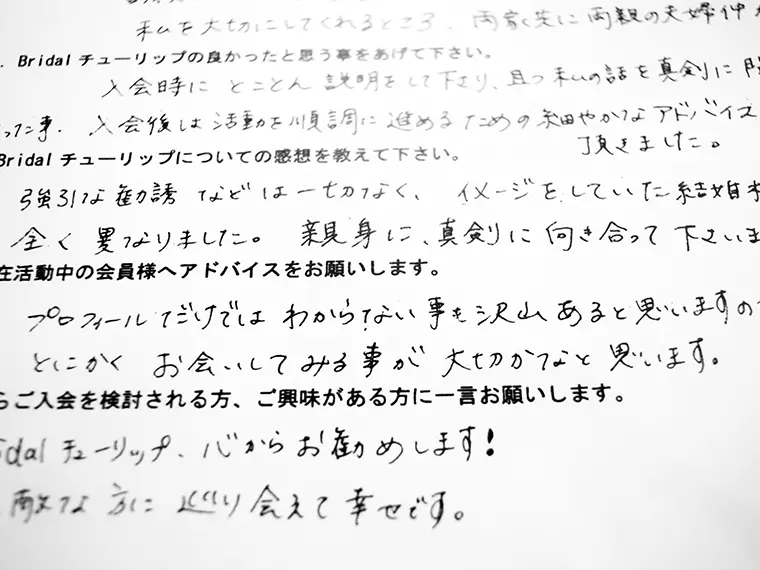 私を大切にしてくれるところ、両家共に両親の夫婦仲が
. Bridalチューリップの良かったと思う事をあげて下さい。
入会時に とことん 説明をして下さり、且つ私の話を真剣に
った事。入会後は活動を順調に進めるための細やかなアドバイス
頂きました。
Bridalチューリップについての感想を教えて下さい。
強引な勧誘 などは一切なく、イメージをしていた結婚相
全く異なりました。親身に、真剣に向き合って下さいま
在活動中の会員様へアドバイスをお願いします。
プロフィールだけでは わからない事も沢山あると思いますので
とにかく お会いしてみる事が 大切かなと思います。
らご入会を検討される方、ご興味がある方に一言お願いします。
idal チューリップ、心からお勧めします!
敵な方に巡り会えて幸せです。